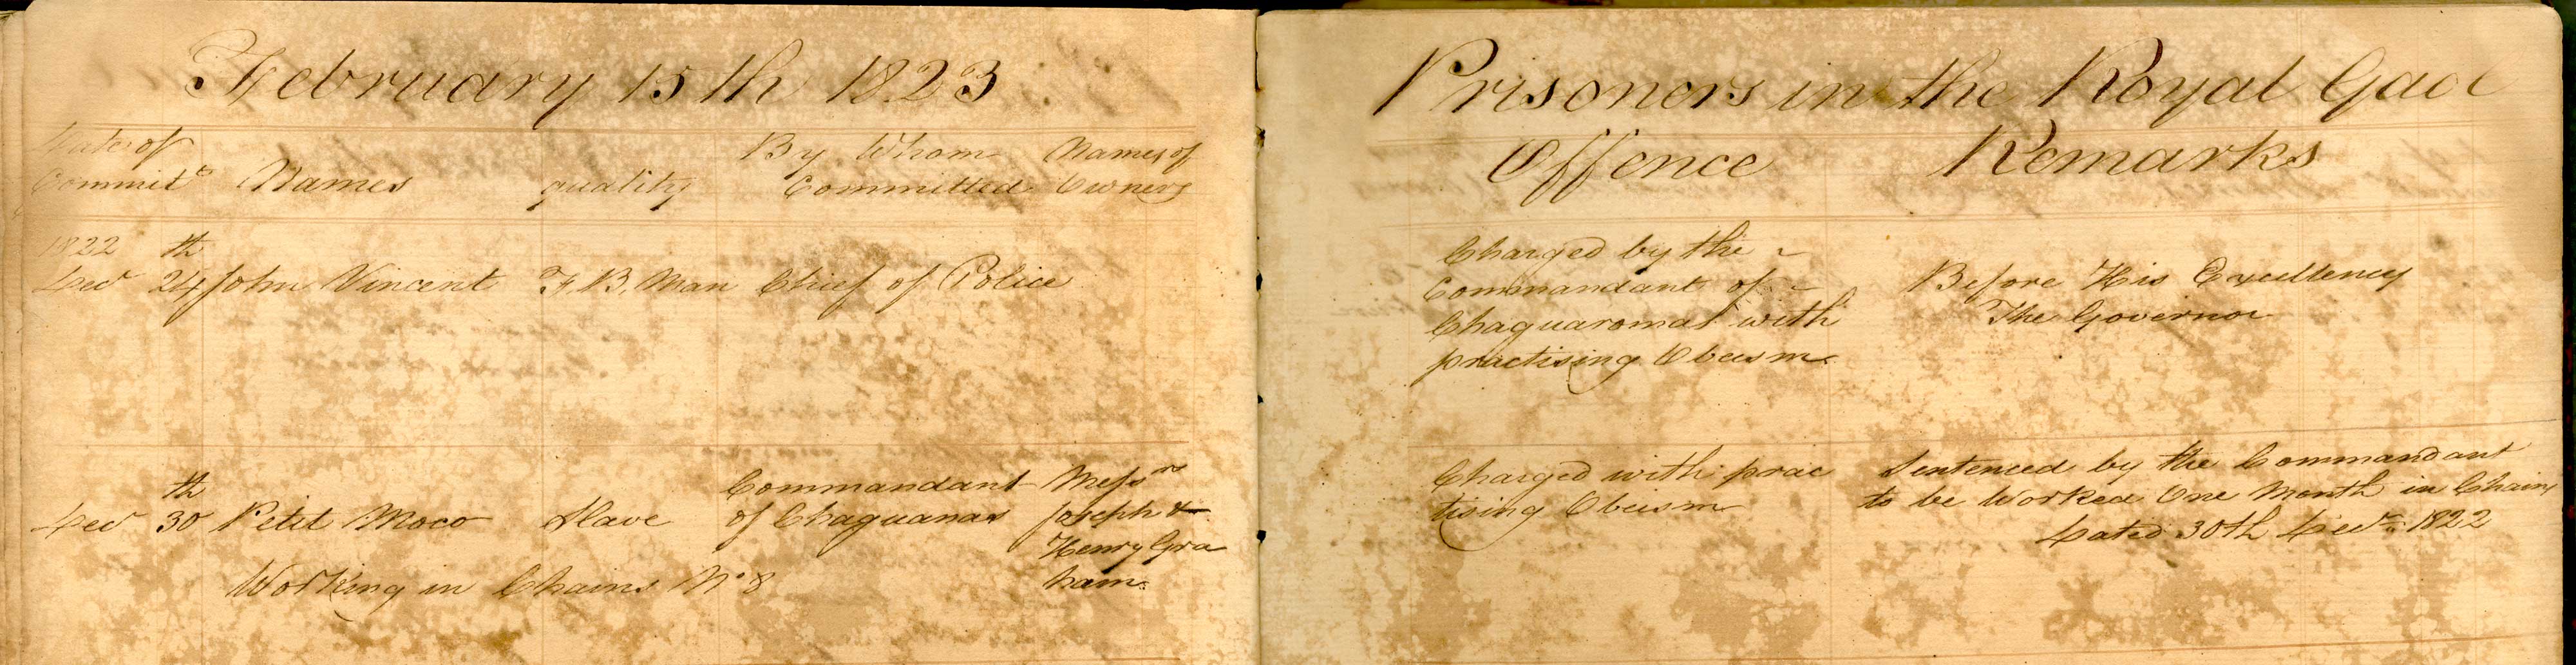 February 15th 1823
Prisoners in the Royal Gaol
Date of
Committ
Names
quality
By Whom
Committed
Names of
Owners
Offence
Remarks
1822
Decr 24th John Vincent F.B. Man Chief of Police
Charged by the
Commandant of
Chaguaromat with
practising Obeism
Before His Excellency
The Governor
Decr 30th Petit Moco Slave
Commandant
of Chaguanas
Messrs
Joseph &
Henry Gra
ham.
Working in Chains No 8
Charged with prac
tising Obeism
Sentenced by the Commandant
to be Worked One Month in Chains
Dated 30th Decr 1822